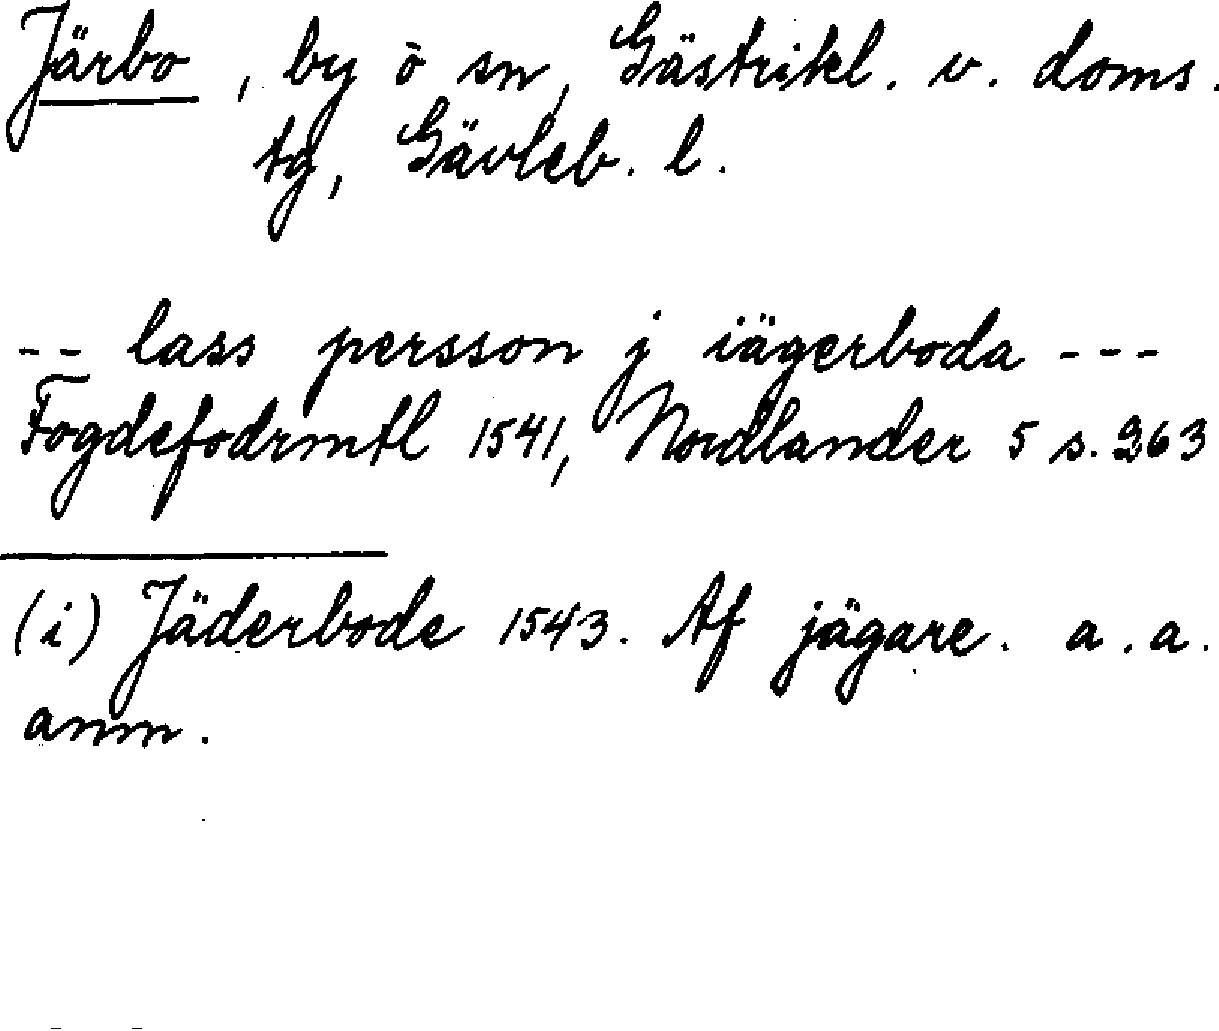 Järbo, by o sn, Gästrikl. v. doms.
tg, Gävleb. l.
-- lass persson j iägerboda ---
Fogdefodrmtl 1541, Nordlander 5 s. 263
(i) Jäderbode 1543. Af jägare. a. a.
anm.